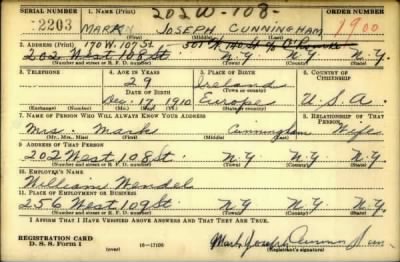 202 W - 108 -
SERIAL NUMBER 1. NAME (Print) ORDER NUMBER
2203 MARK JOSEPH CUNNINGHAM 1900
(First) (Middle) (Last)
2. ADDRESS (Print) 170 W. 107 St.
202 West 108 St. N.Y. N.Y.
(Number and street or R. F. D. number) (Town) (County) (State)
3. TELEPHONE 4. AGE IN YEARS 5. PLACE OF BIRTH 6. COUNTRY OF CITIZENSHIP
29 Ireland
DATE OF BIRTH (Town or county)
Dec. 17 1910 Europe U.S.A.
(Exchange) (Number) (Mo.) (Day) (Yr.) (State or country)
7. NAME OF PERSON WHO WILL ALWAYS KNOW YOUR ADDRESS 8. RELATIONSHIP OF THAT PERSON
Mrs. Mark Cunningham Wife
(Mr., Mrs., Miss) (First) (Middle) (Last)
9. ADDRESS OF THAT PERSON
202 West 108 St. N.Y. N.Y.
(Number and street or R. F. D. number) (Town) (County) (State)
10. EMPLOYER'S NAME
William Wendel
11. PLACE OF EMPLOYMENT OR BUSINESS
256 West 109 St. N.Y. N.Y.
(Number and street or R. F. D. number) (Town) (County) (State)
I AFFIRM THAT I HAVE VERIFIED ABOVE ANSWERS AND THAT THEY ARE TRUE.
REGISTRATION CARD
D. S. S. Form 1 (over) 16-17105 Mark Joseph
(Registrant's signature)